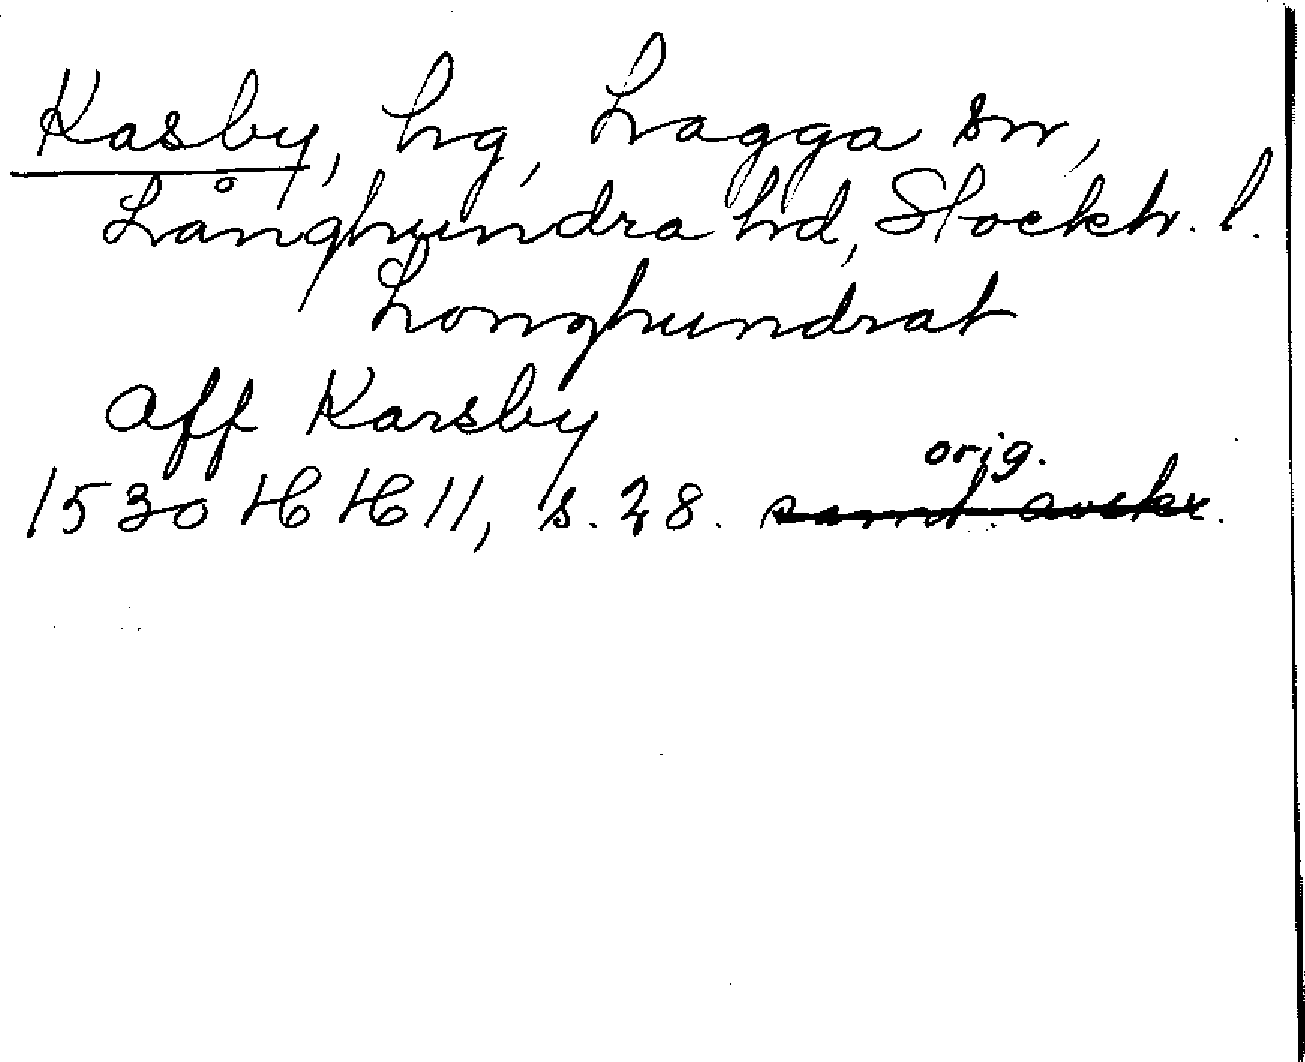 Kasby, hg, Lagga sn,
Långhundra hd, Stockh. l.
Longhundrat
aff Karsby
orig.
1530 HH 11, s. 28. samt. avskr.